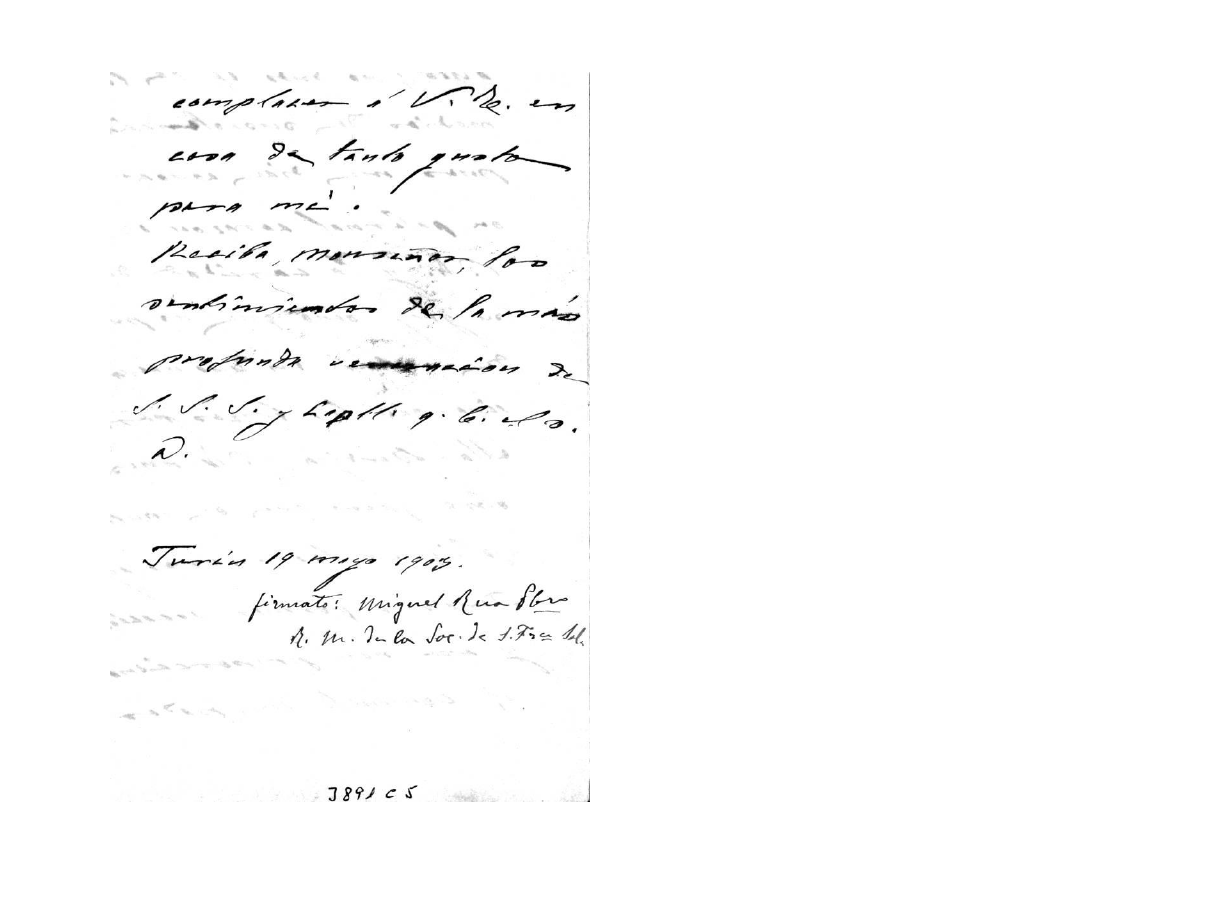 complacer á V. R. en
cosa de tanto gusto
para mí.
Reciba, monseñor, los
sentimientos de la más
profunda veneración de
S. S. S. y Capll. q. b. el s.
A.
Turín 19 mayo 1903.
firmato: Miguel Rua Pbro
R. M. de la Soc. de S. Fsco Sal.
3891 C 5